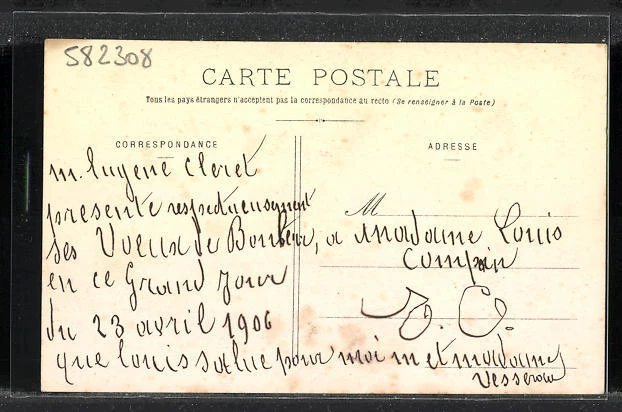 582308
CARTE POSTALE
Tous les pays étrangers n'acceptent pas la correspondance au recto (Se renseigner à la Poste)
CORRESPONDANCE
ADRESSE
M
m. Eugene Cleret
presente respectueusement
ses Voeux de Bonheur, a Madame Louis
Compain
en ce Grand Jour
du 23 avril 1906
que louis salue pour moi m et madame